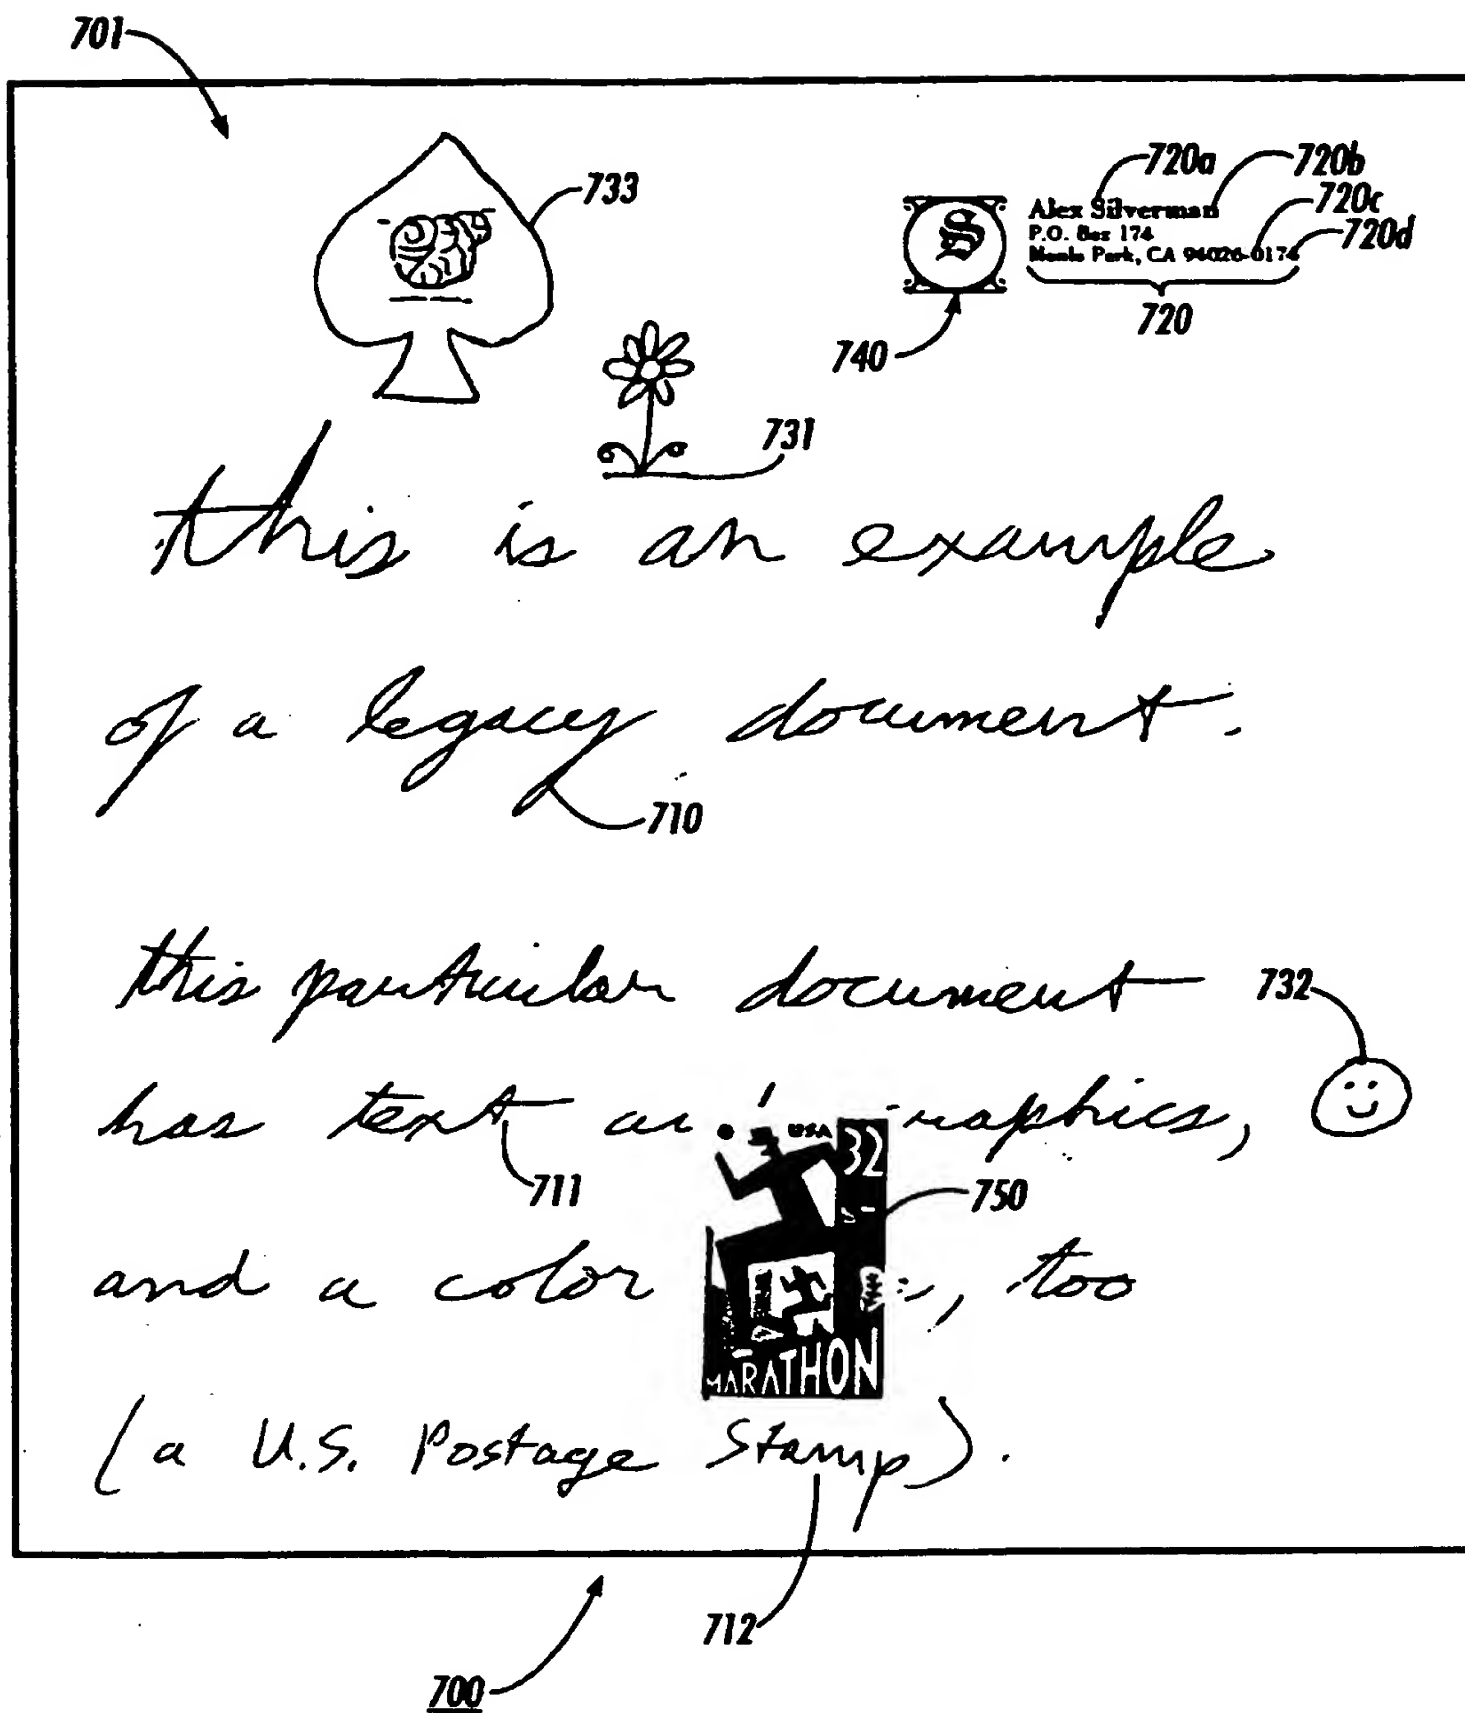 701
733
720a 720b
720c
720d
S
Alex Silverman
P.O. Box 174
Menlo Park, CA 94026-0174
720
740
731
this is an example
of a legacy document.
710
this particular document
732
has text an graphics,
USA
32
711
750
and a color , too
MARATHON
(a U.S. Postage Stamp).
712
700